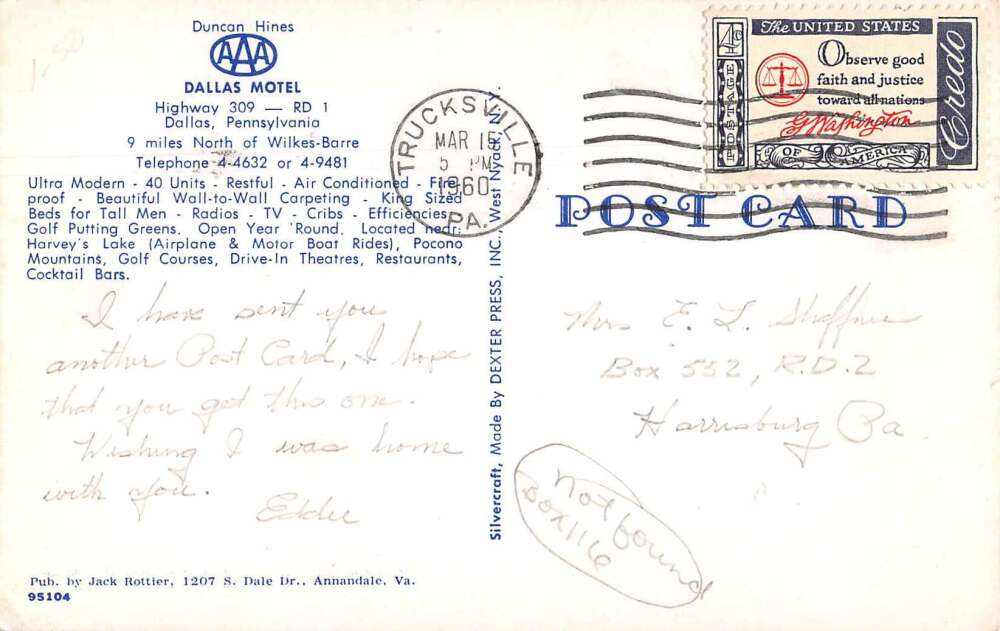 1.50
Duncan Hines
AAA
DALLAS MOTEL
Highway 309 — RD 1
Dallas, Pennsylvania
9 miles North of Wilkes-Barre
Telephone 4-4632 or 4-9481
Ultra Modern - 40 Units - Restful - Air Conditioned - Fire
proof - Beautiful Wall-to-Wall Carpeting - King Sized
Beds for Tall Men - Radios - TV - Cribs - Efficiencies
Golf Putting Greens. Open Year 'Round. Located near:
Harvey's Lake (Airplane & Motor Boat Rides), Pocono
Mountains, Golf Courses, Drive-In Theatres, Restaurants,
Cocktail Bars.
I have sent you
another Post Card, I hope
that you get this one.
Wishing I was home
with you.
Eddie
Pub. by Jack Rottier, 1207 S. Dale Dr., Annandale, Va.
95104
Silvercraft, Made By DEXTER PRESS, INC. West Nyack, N.Y.
TRUCKSVILLE
MAR 15
5 PM
1960
PA.
The UNITED STATES
4¢
POSTAGE
Observe good
faith and justice
toward all nations
GWashington
OF AMERICA
Credo
POST CARD
Mrs E. L. Sheffner
Box 552, R.D.2
Harrisburg Pa
Not found
Box 116